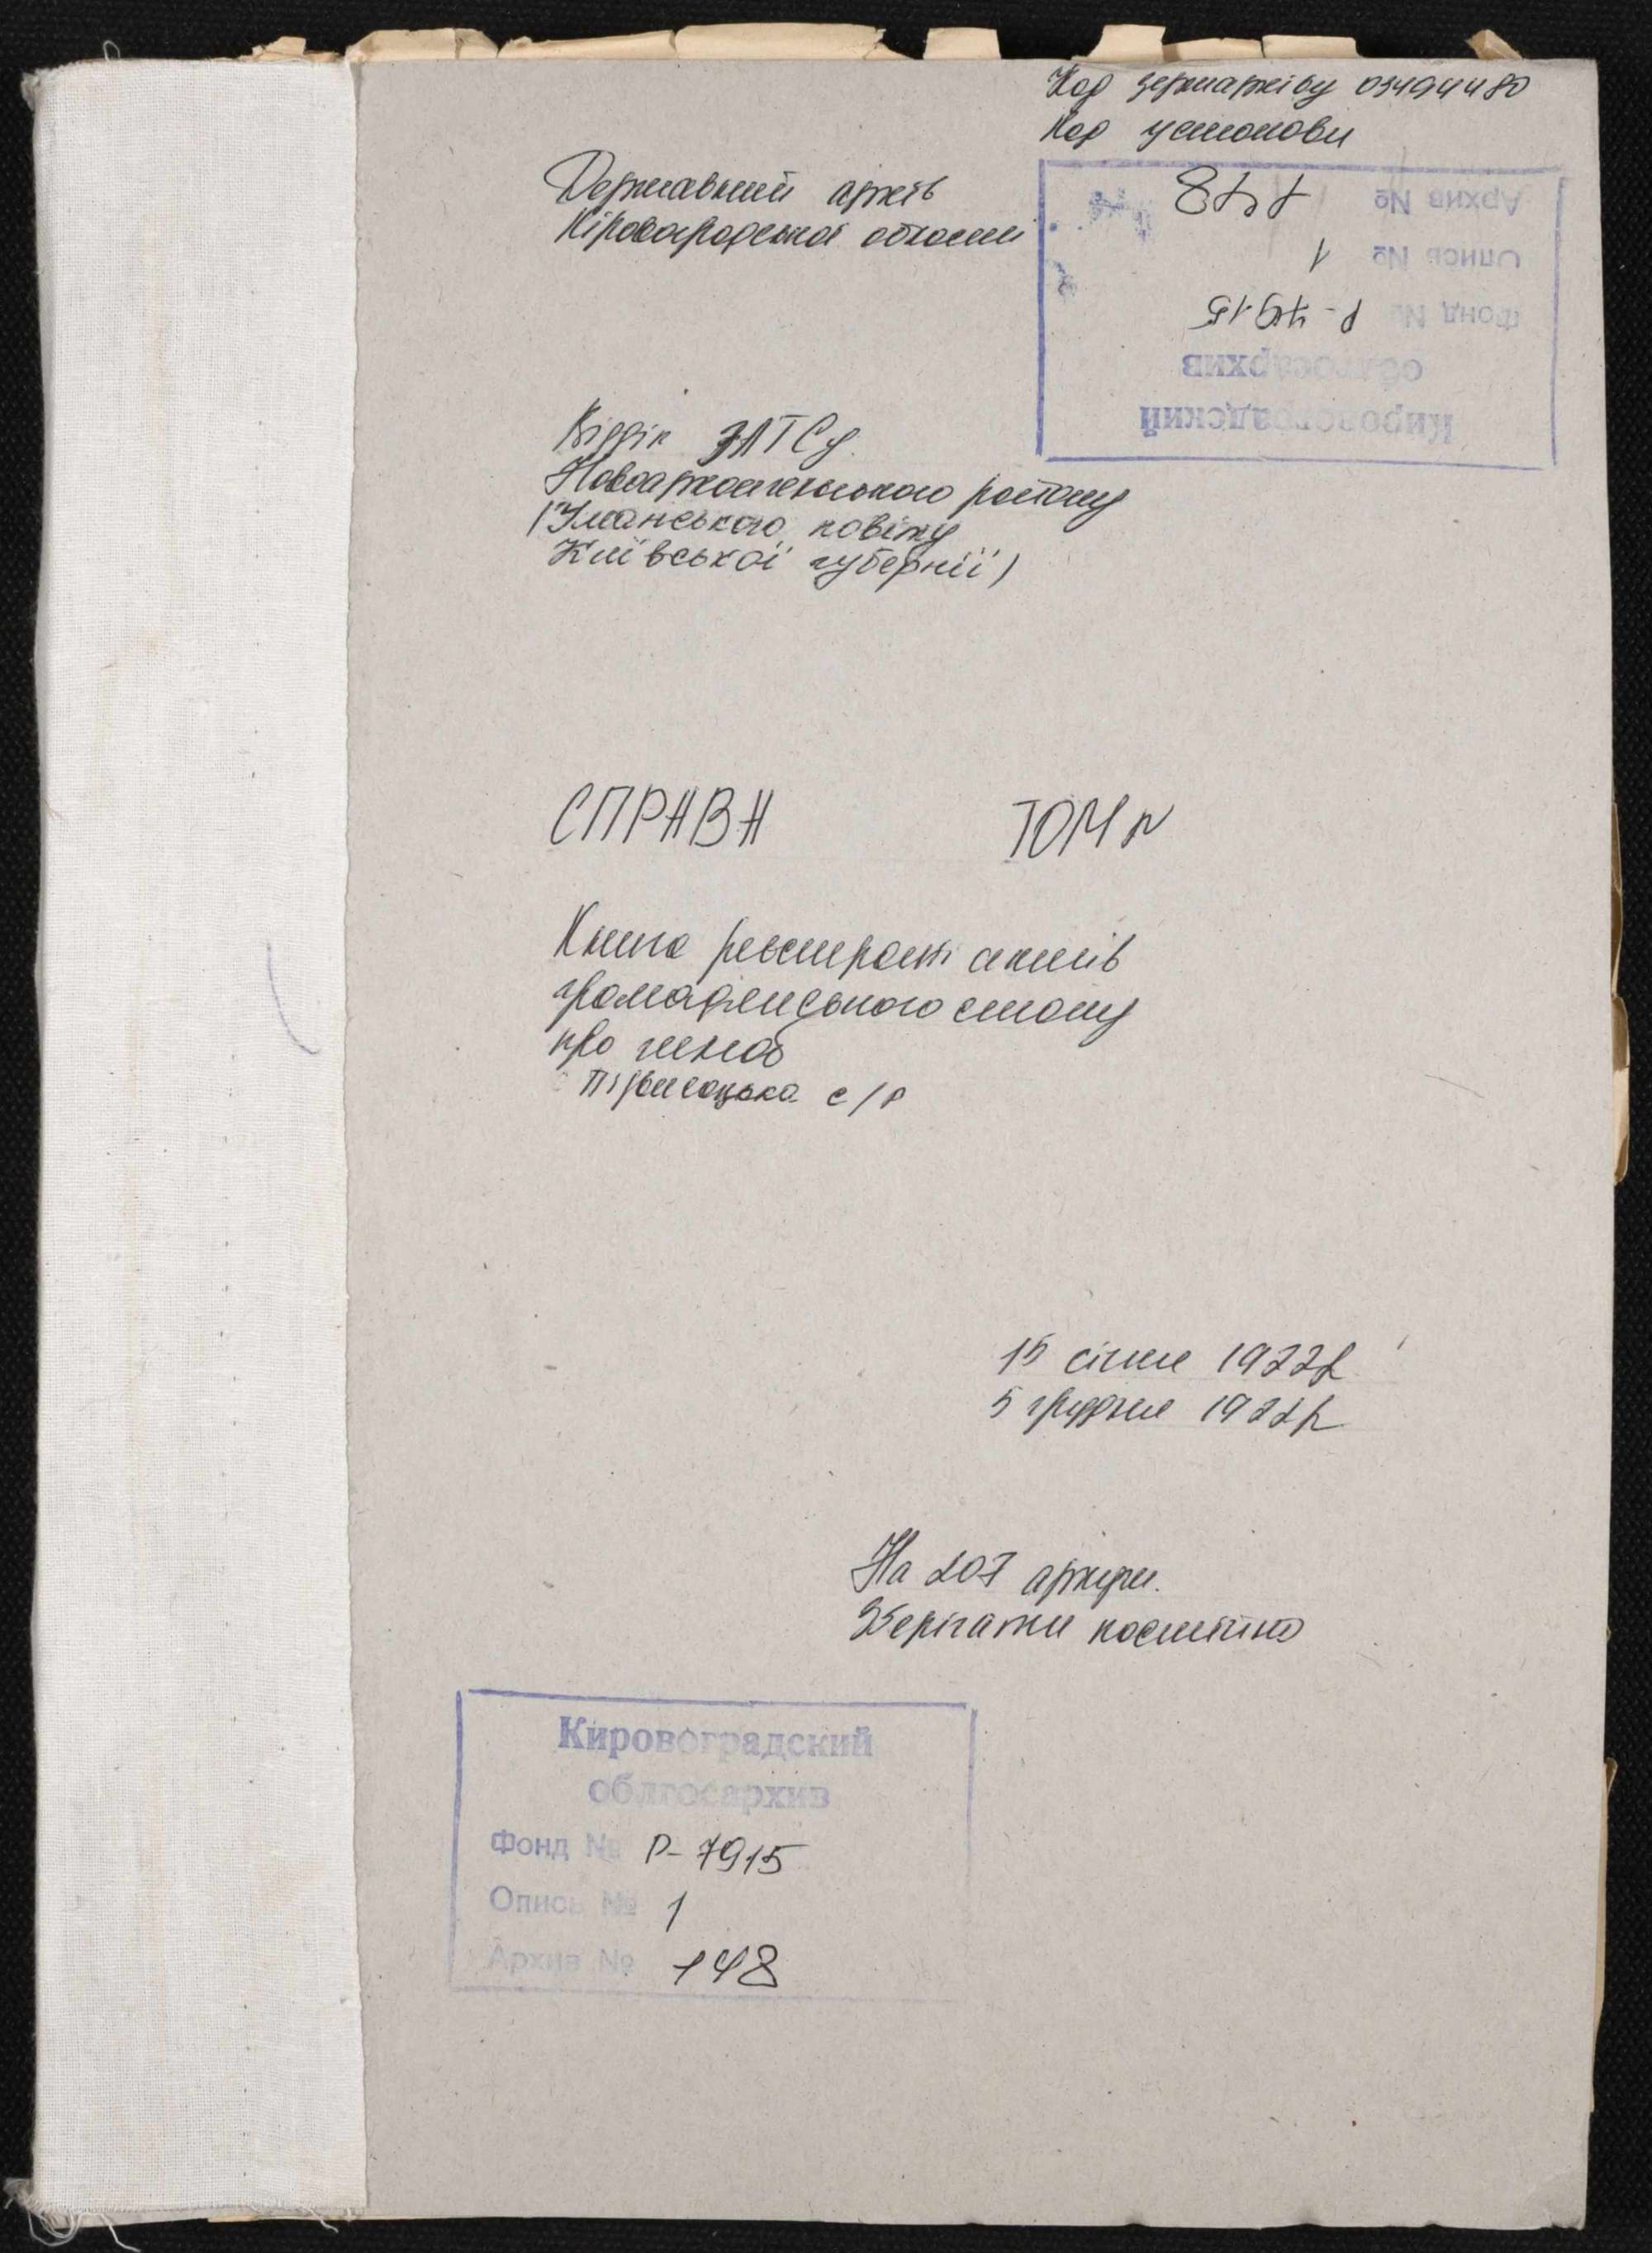 Код держархіву 03494480
Код установи
Державний архів
Кіровоградської області
Кировоградский
облгосархив
Фонд № Р-7915
Опись № 1
Архив № 148
Відділ ЗАГСу
Новоархангельського району
(Уманського повіту
Київської губернії)
СПРАВА ТОМ N
Книга реєстрації актів
громадянського стану
про шлюб
Підвисоцька с/р
15 січня 1922р
5 грудня 1922р
На 207 аркуш.
Зберігати постійно
Кировоградский
облгосархив
Фонд № Р-7915
Опись № 1
Архив № 148